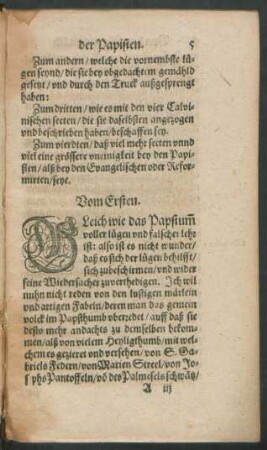 der Papisten. 5
Zum andern/ welche die vornembste lü-
gen seynd/ die sie bey obgedachtem gemähld
gesetzt/ und durch den Truck außgesprengt
haben:
Zum dritten/ wie es mit den vier Calvi-
nischen secten/ die sie daselbsten angezogen
und beschrieben haben/ beschaffen sey.
Zum vierdten/ daß viel mehr secten unnd
viel eine grössere uneinigkeit bey den Papi-
sten/ alß bey den Evangelischen oder Refor-
mirten/ seye.
Vom Ersten.
GLeich wie das Papstum̃
voller lügen und falscher lehr
ist: also ist es nicht wunder/
daß es sich der lügen behilfft/
sich zubeschirmen/ und wider
seine Wiedersacher zuverthedigen. Ich wil
nuhn nicht reden von den lustigen märlein
und artigen Fabeln/ deren man das gemein
volck im Papsthumb uberredet/ auff daß sie
desto mehr andachts zu demselben bekom-
men/ alß von vielem Heyligthumb/ mit wel-
chem es gezieret und versehen/ von S. Ga-
briels Federn/ von Marien Streel/ von Jo-
sephs Pantoffeln/ võ des Palmesels schwätz/
A iij